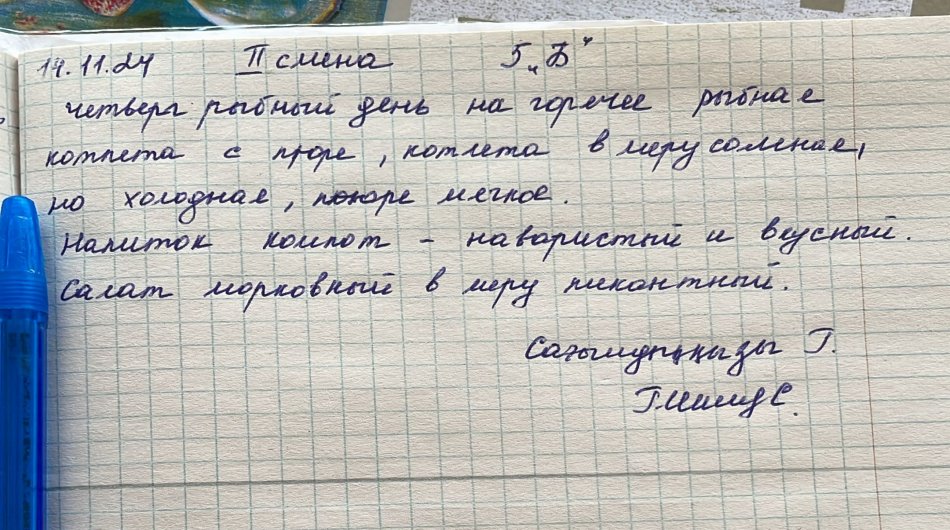 14.11.24 II смена 5 „Б“
четверг рыбный день на горечее рыбная
котлета с пюре, котлета в меру соленая,
но холодная, пюре мягкое.
Напиток компот - наваристый и вкусный.
Салат морковный в меру пикантный.
Г.
С.